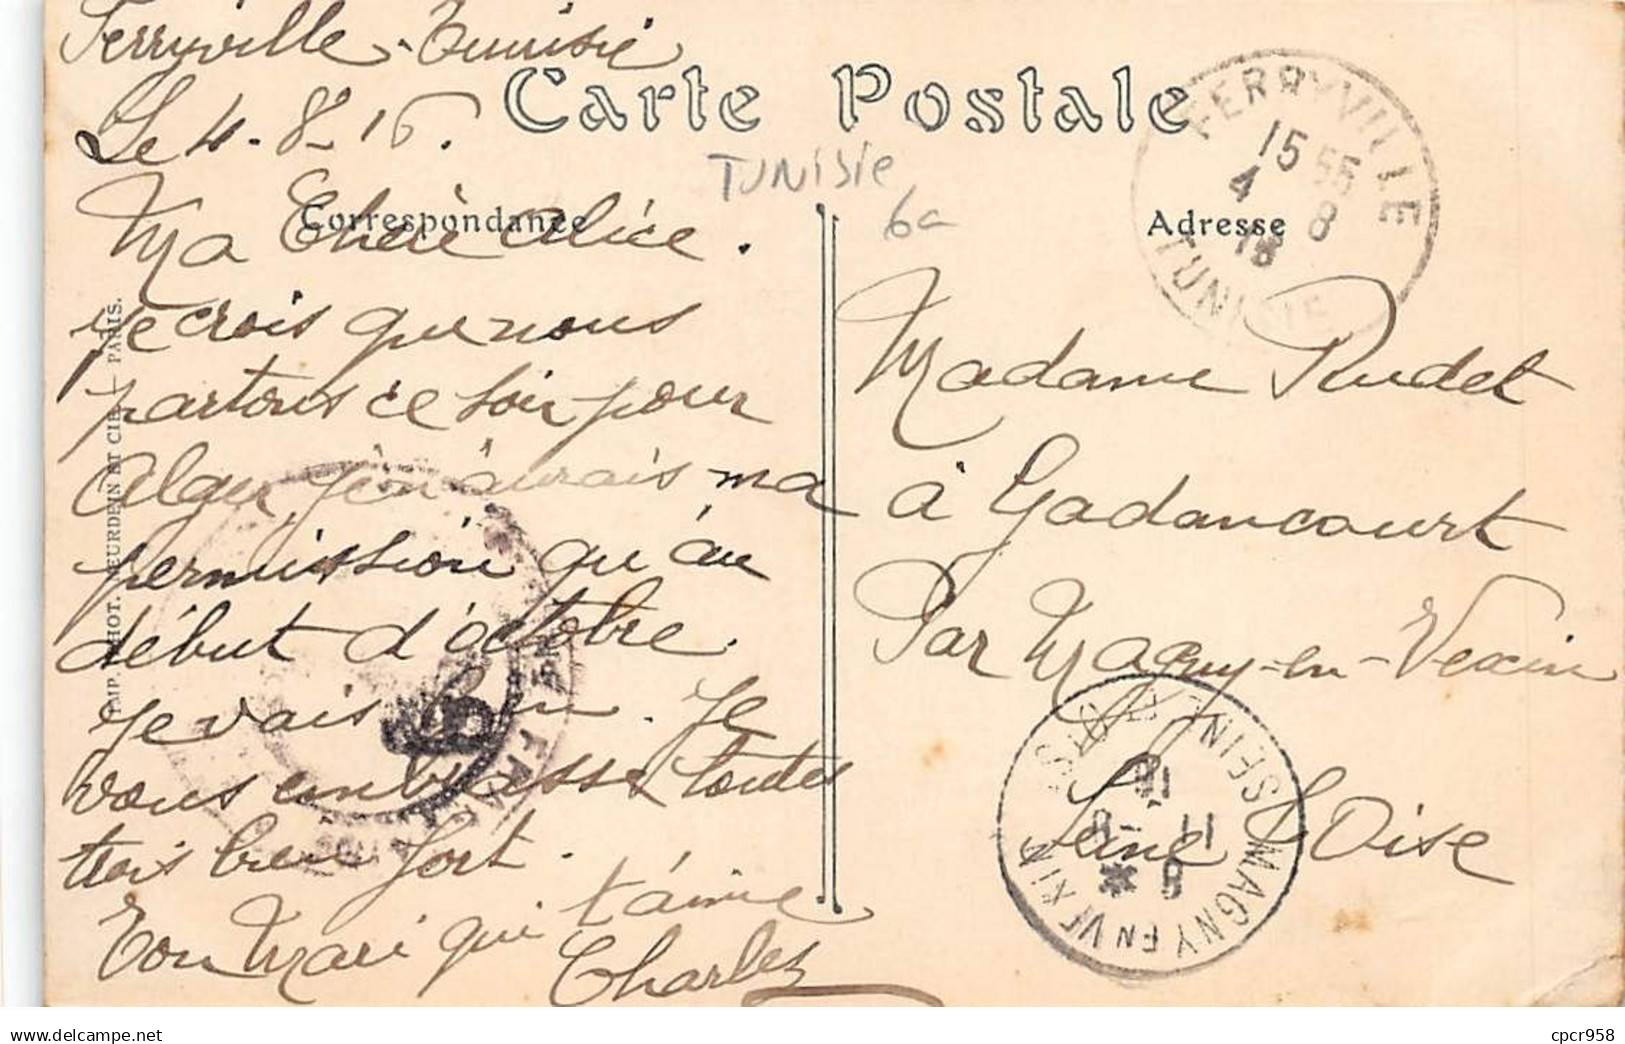 Ferryville - Tunisie
Le 4-8-16.
Carte Postale
TUNISIE
6a
Correspondance
Adresse
FERRYVILLE
15 55
4 8
16
TUNISIE
Ma Chère Alice.
je crois que nous
partons ce soir pour
Alger je n'aurais ma
permission qu'au
début d'octobre.
je vais bien. Je
vous embrasse toutes
trois bien fort.
Ton Mari qui t'aime
Charles
IMP. PHOT. NEURDEIN ET CIE. - PARIS.
Madame Rudet
à Gadancourt
Par Magny-en-Vexin
Seine & Oise
MAGNY EN VEXIN
SEINE ET OISE
11 - 8
16
8 *
cpcr958